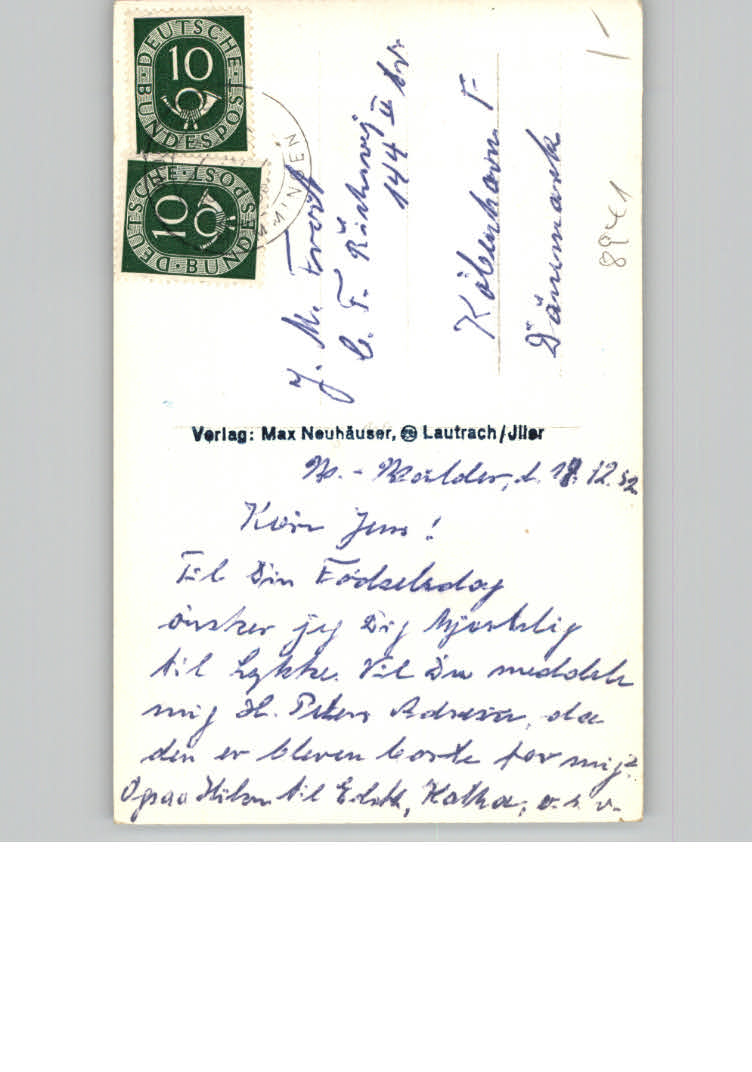 10
DEUTSCHE BUNDESPOST
10
DEUTSCHE BUNDESPOST
J. M.
144 II
Köbenhavn F
Dänemark
8941
Verlag: Max Neuhäuser, Lautrach/Jller
d. 12. 52
Kære Jens!
Til Din Födselsdag
önsker jeg Dig hjertelig
til Lykke. Vil Du meddele
mig H. Peters Adresse, da
den er bleven borte for mig?
Ogsaa Hilsen til Edith, Katha, o. s. v.